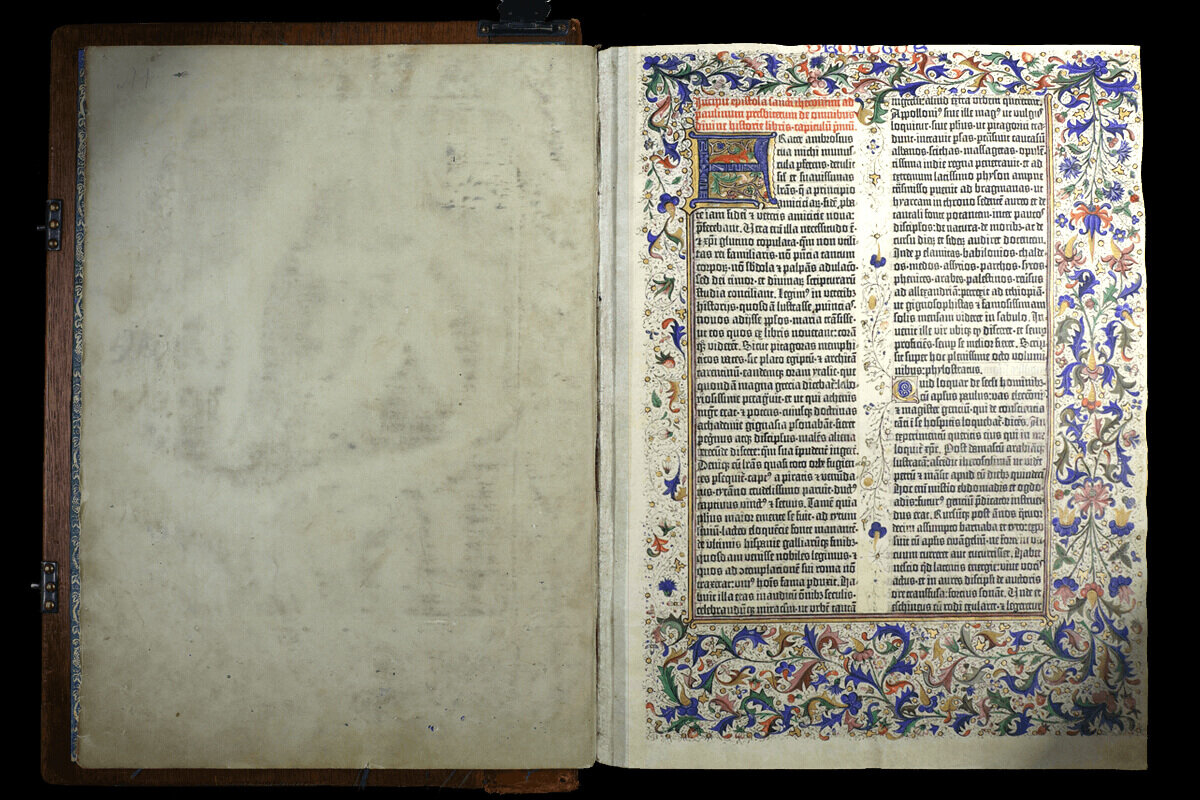 Incipit epistola sancti iheronimi ad
paulinum presbiterum de omnibus
diuine historie libris·capitulū pmū.
Frater ambrosius
tua michi munus-
cula pferens·detulit
sil et suauissimas
lrās·q̄ a principio
amiciciaꝝ·fidē pba-
te iam fidei et veteris amicicie noua:
pferebant. Vera em̄ illa necessitudo ē·
et xp̄i glutino copulata·qm̄ non vtili-
tas rei familiaris·nō pn̄cia tantum
corpoꝝ·nō sbdola et palpās adulaco·
sed dei timor·et diuinaꝝ scripturarū
studia conciliant. Legim⁹ in veterib⁹
historijs·quosdā lustrasse puincias·
nouos adijsse pplos·maria trāsisse·
ut eos quos ex libris nouerant: corā
qꝫ viderēt. Sicut pitagoras memphi-
ticos vates·sic plato egiptū·et architā
tarentinū·eandemqꝫ oram ytalie·que
quondā magna grecia dicebat̄·labo-
riosissime peragrauit: et ut qui athenis
mgr̄ erat·et potens·cuiusqꝫ doctrinas
achademie gignasia psonabāt·fieret
peregrinus atqꝫ discipulus·malēs aliena
verecūde discere: qm̄ sua īpudenter ingerere.
Deniqꝫ cū lrās quasi toto orbe fugien-
tes psequit̄·capt⁹ a piratis et venūda-
tus·tyrāno crudelissimo paruit·duct⁹
captiuus vinct⁹ et seruus. Tamē quia
phūs maior emente se fuit·ad tytum
liuiū·lacteo eloquētie fonte manantē·
de vltimis hispanie galliarūqꝫ finib⁹·
quosdam venisse nobiles legimus·et
quos ad cotemplacionē sui roma nō
traxerat: vni⁹ hoīs fama pduxit. Ha-
buit illa etas inauditū oīnib⁹ seculis·
celebrandūqꝫ miraculū·ut vrbē tantā
ingressi: aliud extra vrbem quererent.
Appolloni⁹ siue ille mag⁹ ut vulgus
loquitur·siue phūs·ut pitagorici tra-
dunt·intrauit psas·ptrāsiuit caucasū·
albanos·scithas·massagetas·opulē-
tissima indie regna penetrauit: et ad
extremum latissimo physon ampne
trāsmisso puenit ad bragmanas·ut
hyarcam in throno sedentē aureo et de
tantali fonte potantem·inter paucos
discipulos·de natura·de moribꝫ·ac de
cursu dieꝝ et sideꝝ audiret docentem.
Inde p elamitas·babilonios·chalde-
os·medos·assyrios·parthos·syros·
phenices·arabes·palestinos·reūsus
ad allexandriā: perrexit ad ethiopiā·
ut gignosophistas et famosissimam
solis mensam videret in sabulo. In-
uenit ille vir vbiqꝫ qd disceret·et semp
proficiēs·semp se melior fieret. Scrip-
sit super hoc plenissime octo volumi-
nibus: phylostratus.
Quid loquar de secli hominibꝫ·
cū aplus paulus: vas electōnis·
et magister genciū·qui de consciencia
tanti ī se hospitis loquebat̄·dicēs. An
experimentū queritis eius qui in me
loquit̄ xp̄c. Post damascū arabiāqꝫ
lustratā: ascēdit iherosolimā ut vidēt
petrū et māsit apud eū dieb⁹ quindeci.
Hoc em̄ misterio ebdomadis et ogdo-
adis: futur⁹ genciū pdicator instruen-
dus erat. Rursūqꝫ post ānos q̄tuor-
decim assumpto barnaba et tyto: expo-
suit cū aplis ewāgeliū·ne forte in va-
cuum curreret aut cucurrisset. Habet
nescio qd latentis energie: viue vocis
actus·et in aures discipli de auctoris
ore transfusa: forcius sonat. Unde et
eschineus cū rodi exularet·et legeretur